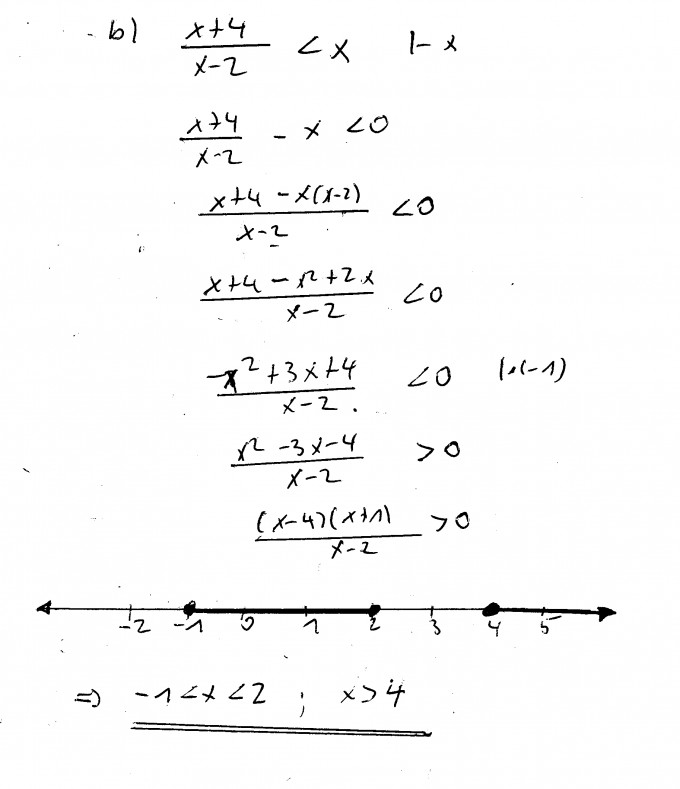 b) (x+4)/(x-2) < x |- x
(x+4)/(x-2) - x < 0
(x+4 - x(x-2))/(x-2) < 0
(x+4 - x² + 2x)/(x-2) < 0
(-x² + 3x + 4)/(x-2) < 0 |·(-1)
(x² - 3x - 4)/(x-2) > 0
((x-4)(x+1))/(x-2) > 0
-2 -1 0 1 2 3 4 5
⇒ -1 < x < 2 ; x > 4